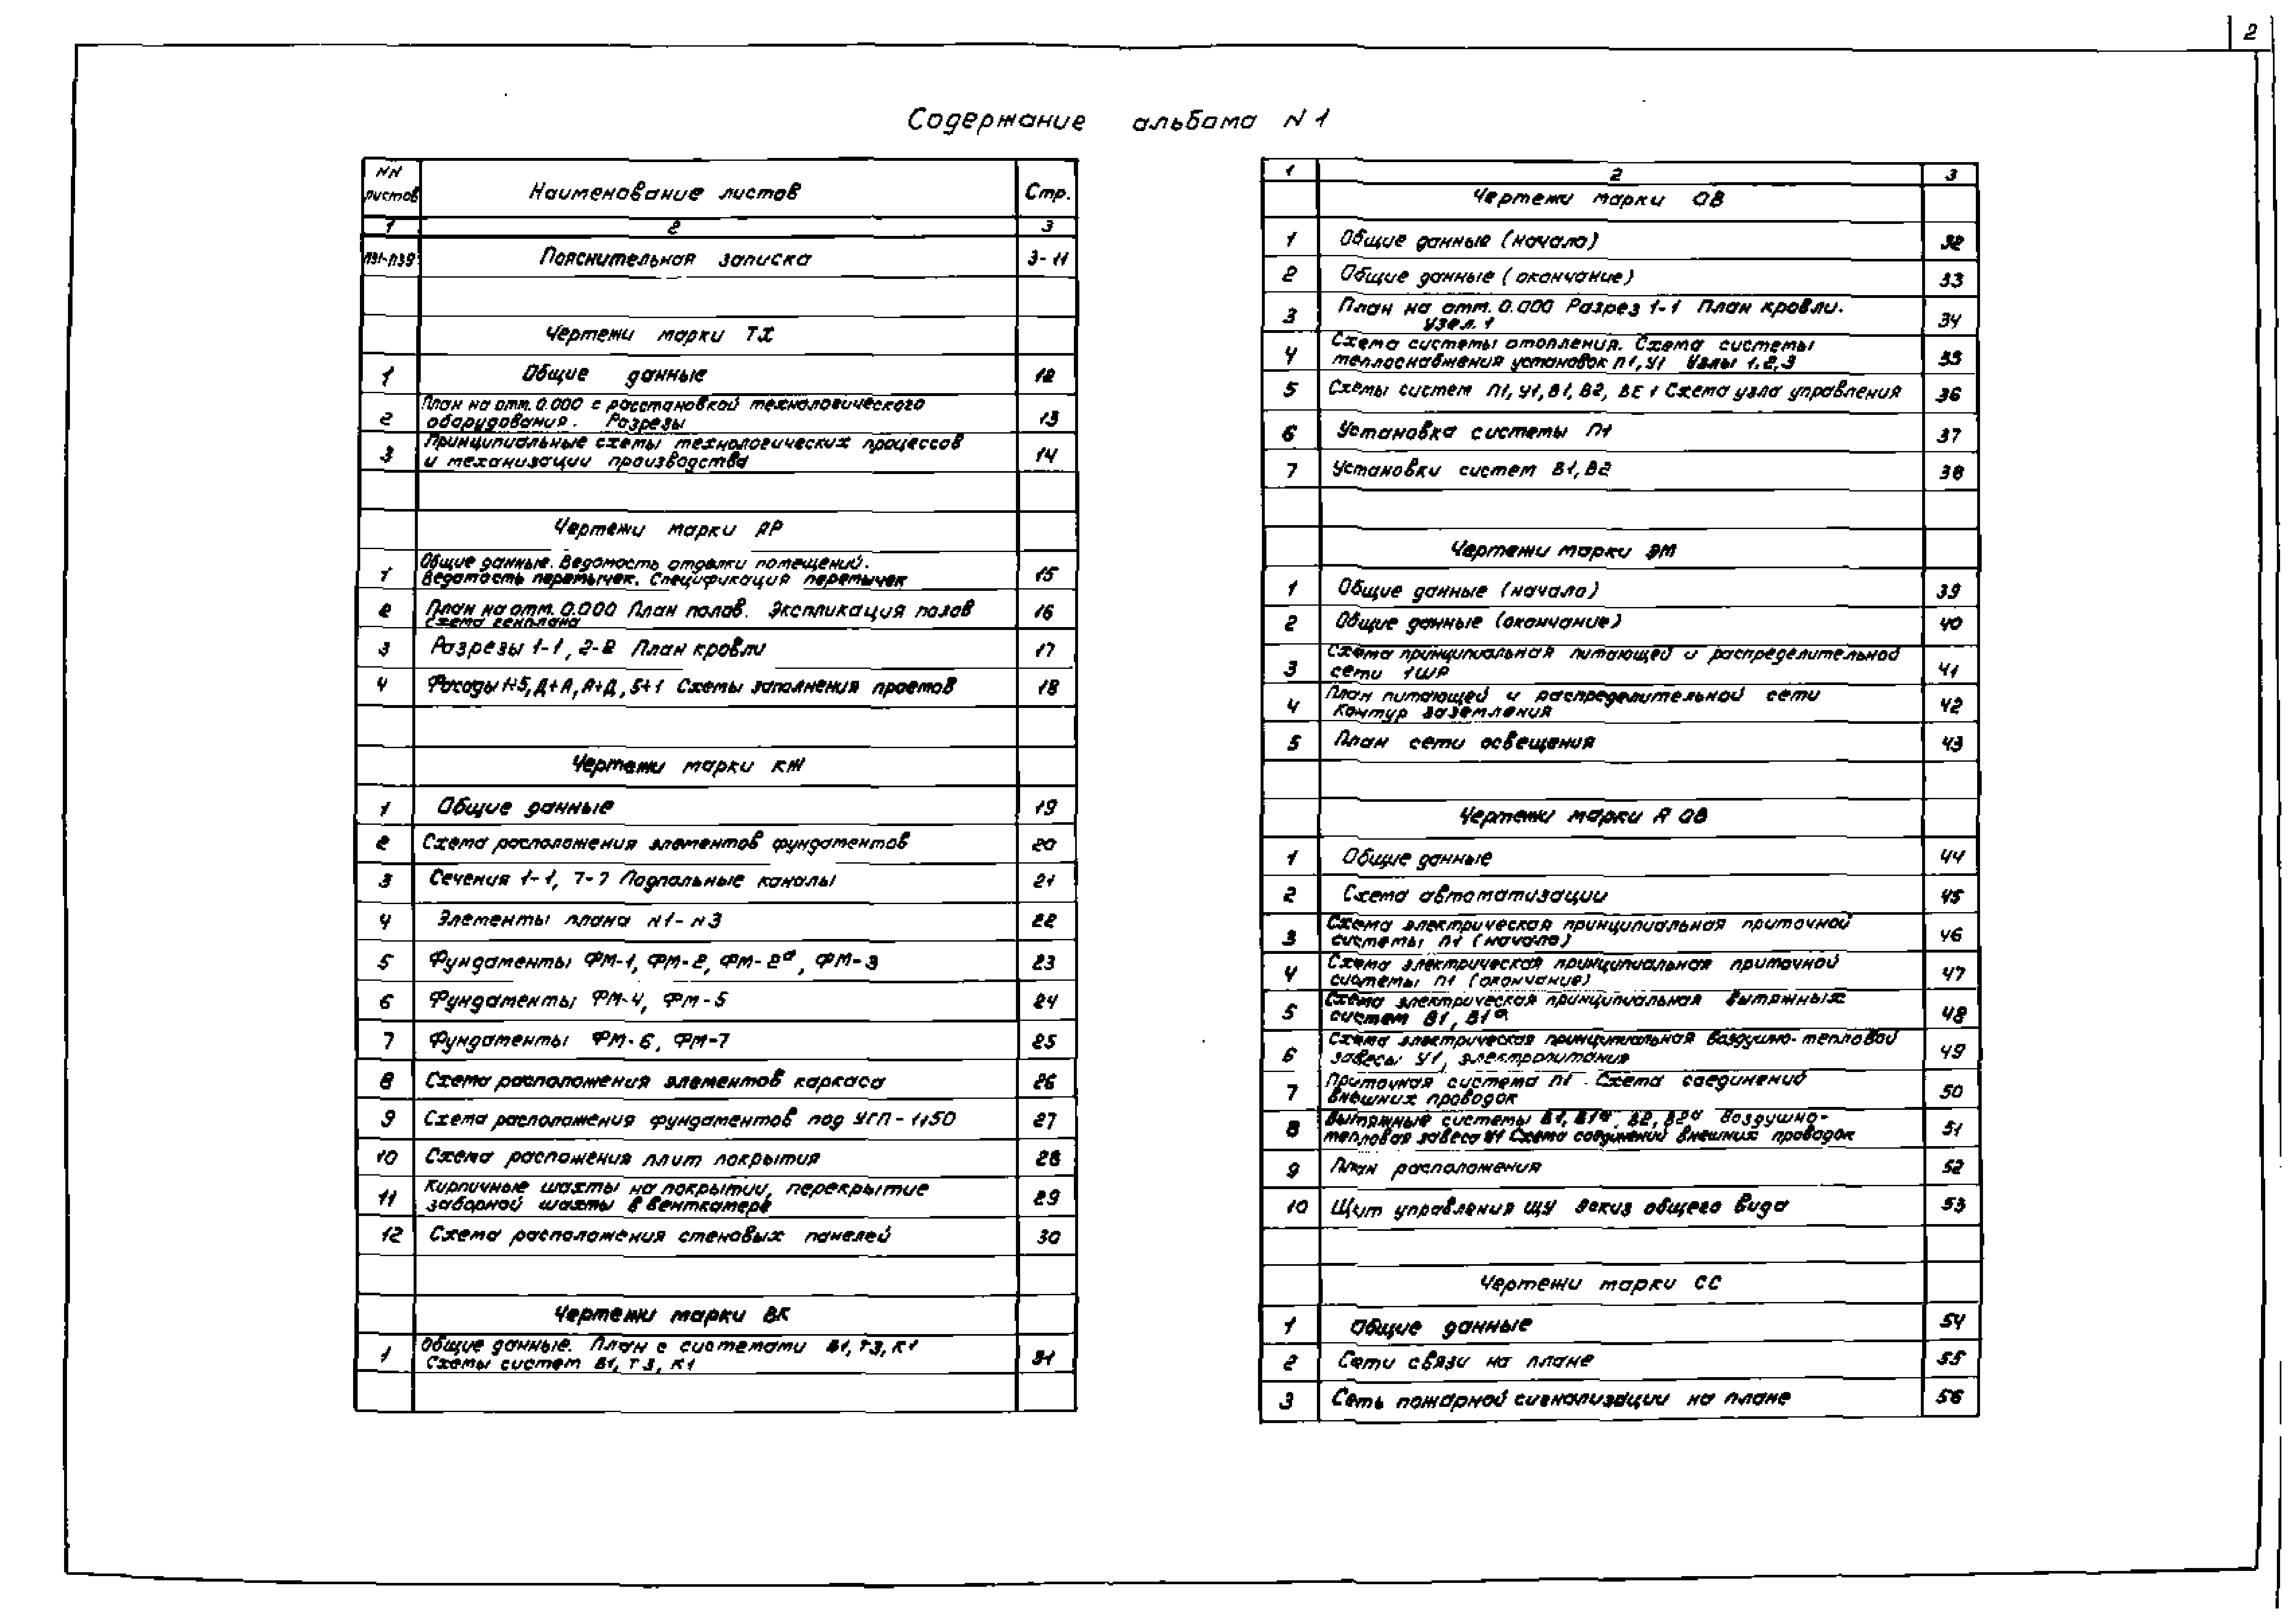 2
Содержание альбома N 1
NN листов Наименование листов Стр.
1 2 3
ПЗ1-ПЗ9 Пояснительная записка 3-11
Чертежи марки ТХ
1 Общие данные 12
План на отм. 0.000 с расстановкой технологического
2 оборудования. Разрезы 13
Принципиальные схемы технологических процессов
3 и механизации производства 14
Чертежи марки АР
Общие данные. Ведомость отделки помещений.
1 Ведомость перемычек. Спецификация перемычек 15
2 План на отм. 0.000 План полов. Экспликация полов 16
Схема генплана
3 Разрезы 1-1, 2-2 План кровли 17
4 Фасады 1÷5, Д÷А, А÷Д, 5÷1 Схемы заполнения проемов 18
Чертежи марки КЖ
1 Общие данные 19
2 Схема расположения элементов фундаментов 20
3 Сечения 1-1, 7-7 Подпольные каналы 21
4 Элементы плана N1-N3 22
5 Фундаменты ФМ-1, ФМ-2, ФМ-2а, ФМ-3 23
6 Фундаменты ФМ-4, ФМ-5 24
7 Фундаменты ФМ-6, ФМ-7 25
8 Схема расположения элементов каркаса 26
9 Схема расположения фундаментов под УГП- 27
10 Схема распожения плит покрытия 28
Кирпичные шахты на покрытии, перекрытие
11 заборной шахты в венткамере 29
12 Схема расположения стеновых панелей 30
Чертежи марки ВК
Общие данные. План с системами В1, Т3, К1
1 Схемы систем В1, Т3, К1 31
1 2 3
Чертежи марки ОВ
1 Общие данные (начало) 32
2 Общие данные (окончание) 33
План на отм. 0.000 Разрез 1-1 План кровли.
3 Узел. 1 34
Схема системы отопления. Схема системы
4 теплоснабжения установок П1, У1 Узлы 1,2,3 35
5 Схемы систем П1, У1, В1, В2, ВЕ1 Схема узла управления 36
6 Установка системы П1 37
7 Установки систем В1, В2 38
Чертежи марки ЭМ
1 Общие данные (начало) 39
2 Общие данные (окончание) 40
Схема принципиальная питающей и распределительной
3 сети 1ШР 41
План питающей и распределительной сети
4 Контур заземления 42
5 План сети освещения 43
Чертежи марки А ОВ
1 Общие данные 44
2 Схема автоматизации 45
Схема электрическая принципиальная приточной
3 системы П1 (начало) 46
Схема электрическая принципиальная приточной
4 системы П1 (окончание) 47
Схема электрическая принципиальная вытяжных
5 систем В1, В1а 48
Схема электрическая принципиальная воздушно-тепловой
6 завесы У1, электропитания 49
Приточная система П1 Схема соединений
7 внешних проводок 50
Вытяжные системы В1, В1а, В2, В2а Воздушно-
8 тепловая завеса У1 Схема соединений внешних проводок 51
9 План расположения 52
10 Щит управления ЩУ Эскиз общего вида 53
Чертежи марки СС
1 Общие данные 54
2 Сети связи на плане 55
3 Сеть пожарной сигнализации на плане 56